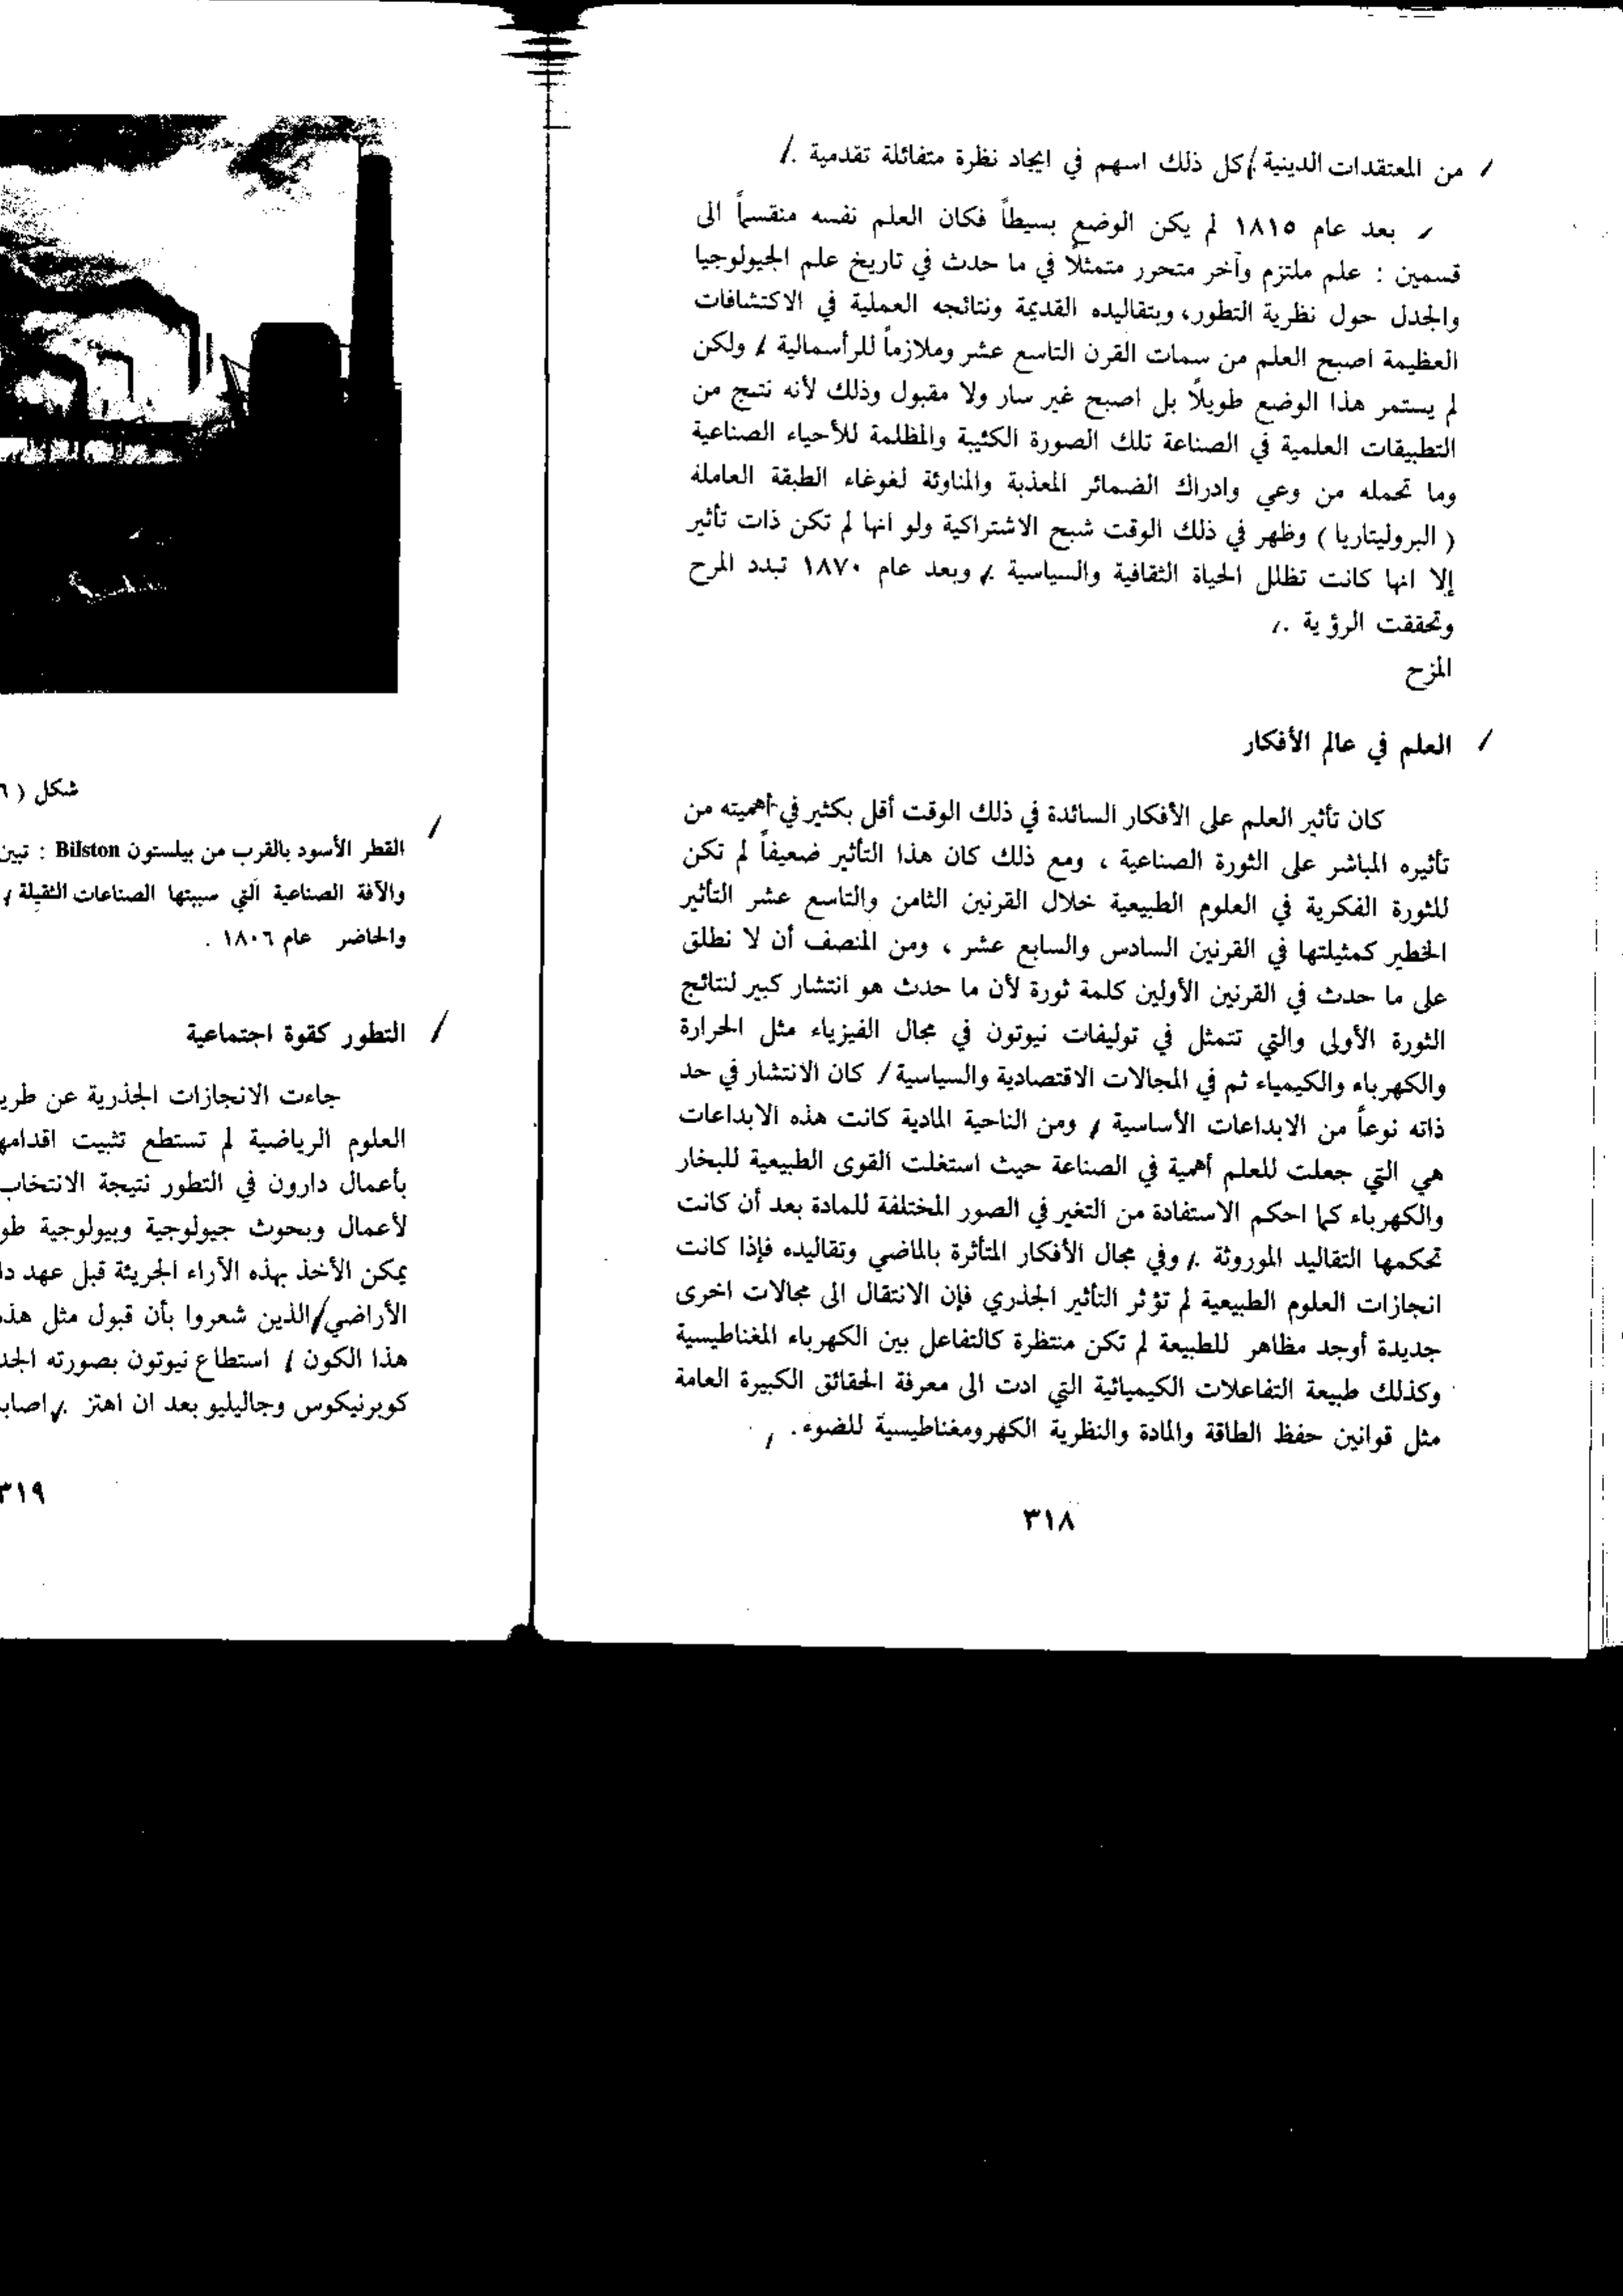 من المعتقدات الدينية / كل ذلك اسهم في ايجاد نظرة متفائلة تقدمية ./
بعد عام ١٨١٥ لم يكن الوضع بسيطاً فكان العلم نفسه منقسماً الى
قسمين : علم ملتزم وآخر متحرر متمثلاً في ما حدث في تاريخ علم الجيولوجيا
والجدل حول نظرية التطور، وبتقاليده القديمة ونتائجه العملية في الاكتشافات
العظيمة اصبح العلم من سمات القرن التاسع عشر وملازماً للرأسمالية / ولكن
لم يستمر هذا الوضع طويلاً بل اصبح غير سار ولا مقبول وذلك لأنه نتج من
التطبيقات العلمية في الصناعة تلك الصورة الكئيبة والمظلمة للأحياء الصناعية
وما تحمله من وعي وادراك الضمائر المعذبة والمناوئة لغوغاء الطبقة العاملة
( البروليتاريا ) وظهر في ذلك الوقت شبح الاشتراكية ولو انها لم تكن ذات تأثير
إلا انها كانت تظلل الحياة الثقافية والسياسية ./ وبعد عام ١٨٧٠ تبدد المرح
وتحققت الرؤية ./
المزح
العلم في عالم الأفكار
كان تأثير العلم على الأفكار السائدة في ذلك الوقت أقل بكثير في أهميته من
تأثيره المباشر على الثورة الصناعية ، ومع ذلك كان هذا التأثير ضعيفاً لم تكن
للثورة الفكرية في العلوم الطبيعية خلال القرنين الثامن والتاسع عشر التأثير
الخطير كمثيلتها في القرنين السادس والسابع عشر ، ومن المنصف أن لا نطلق
على ما حدث في القرنين الأولين كلمة ثورة لأن ما حدث هو انتشار كبير لنتائج
الثورة الأولى والتي تتمثل في توليفات نيوتون في مجال الفيزياء مثل الحرارة
والكهرباء والكيمياء ثم في المجالات الاقتصادية والسياسية / كان الانتشار في حد
ذاته نوعاً من الابداعات الأساسية / ومن الناحية المادية كانت هذه الابداعات
هي التي جعلت للعلم أهمية في الصناعة حيث استغلت القوى الطبيعية للبخار
والكهرباء كما احكم الاستفادة من التغير في الصور المختلفة للمادة بعد أن كانت
تحكمها التقاليد الموروثة ./ وفي مجال الأفكار المتأثرة بالماضي وتقاليده فإذا كانت
انجازات العلوم الطبيعية لم تؤثر التأثير الجذري فإن الانتقال الى مجالات اخرى
جديدة أوجد مظاهر للطبيعة لم تكن منتظرة كالتفاعل بين الكهرباء المغناطيسية
وكذلك طبيعة التفاعلات الكيميائية التي ادت الى معرفة الحقائق الكبيرة العامة
مثل قوانين حفظ الطاقة والمادة والنظرية الكهرومغناطيسية للضوء. /
٣١٨
شكل (
القطر الأسود بالقرب من بيلستون Bilston : تبين
والآفة الصناعية التي سببتها الصناعات الثقيلة /
والحاضر عام ١٨٠٦ .
التطور كقوة اجتماعية
جاءت الانجازات الجذرية عن
العلوم الرياضية لم تستطع تثبيت
بأعمال دارون في التطور نتيجة الانتخاب
لأعمال وبحوث جيولوجية وبيولوجية
يمكن الأخذ بهذه الأراء الجريئة قبل عهد
الأراضي / الذين شعروا بأن قبول مثل
هذا الكون / استطاع نيوتون بصورته
كوبرنيكوس وجاليليو بعد ان اهتز ./
٣١٩